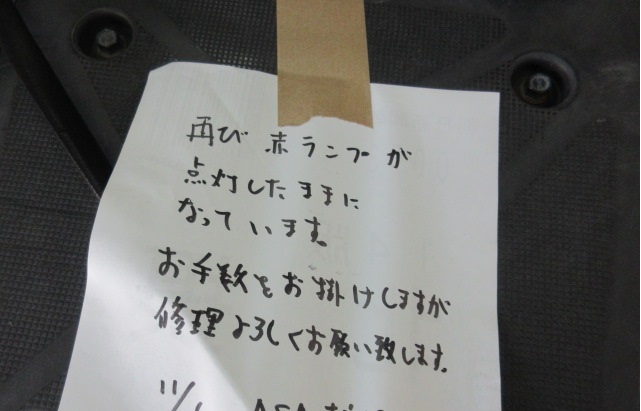 再び赤ランプが
点灯したままに
なっています。
お手数をお掛けしますが
修理よろしくお願い致します。
11/